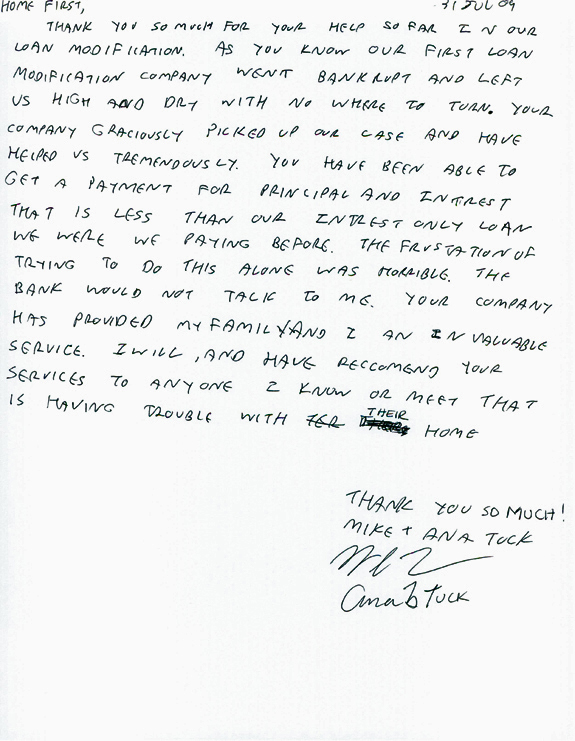 HOME FIRST, 31 JUL 09
THANK YOU SO MUCH FOR YOUR HELP SO FAR IN OUR
LOAN MODIFICATION. AS YOU KNOW OUR FIRST LOAN
MODIFICATION COMPANY WENT BANKRUPT AND LEFT
US HIGH AND DRY WITH NO WHERE TO TURN. YOUR
COMPANY GRACIOUSLY PICKED UP OUR CASE AND HAVE
HELPED US TREMENDOUSLY. YOU HAVE BEEN ABLE TO
GET A PAYMENT FOR PRINCIPAL AND INTREST
THAT IS LESS THAN OUR INTREST ONLY LOAN
WE WERE WE PAYING BEFORE. THE FRUSTATION OF
TRYING TO DO THIS ALONE WAS HORRIBLE. THE
BANK WOULD NOT TALK TO ME. YOUR COMPANY
HAS PROVIDED MY FAMILY AND I AN INVALUABLE
SERVICE. I WILL, AND HAVE RECCOMEND YOUR
SERVICES TO ANYONE I KNOW OR MEET THAT
IS HAVING TROUBLE WITH THEIR HOME
THANK YOU SO MUCH!
MIKE + ANA TUCK
Ana B Tuck